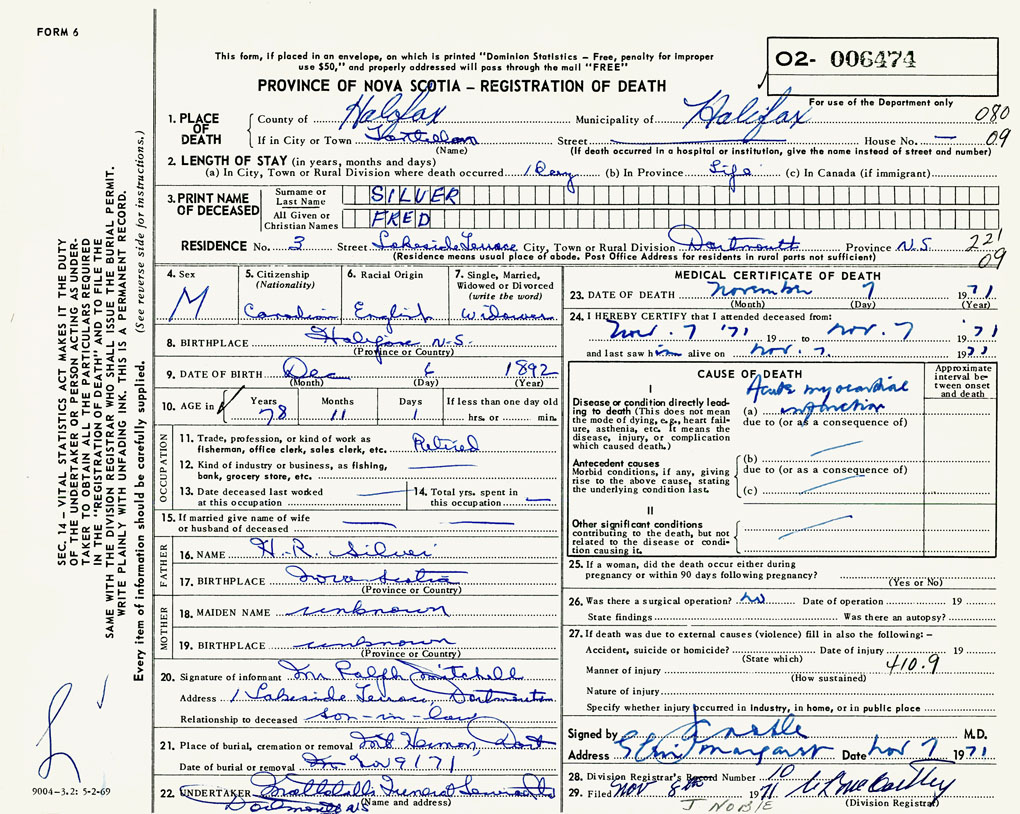 FORM 6
This form, if placed in an envelope, on which is printed "Dominion Statistics – Free, penalty for improper
use $50," and properly addressed will pass through the mail "FREE"
02- 006474
PROVINCE OF NOVA SCOTIA – REGISTRATION OF DEATH
For use of the Department only
080
09
1. PLACE OF DEATH
County of Halifax Municipality of Halifax
If in City or Town Street House No. —
(Name) (If death occurred in a hospital or institution, give the name instead of street and number)
2. LENGTH OF STAY (in years, months and days)
(a) In City, Town or Rural Division where death occurred 1 Day (b) In Province Life (c) In Canada (if immigrant)
3. PRINT NAME OF DECEASED
Surname or Last Name SILVER
All Given or Christian Names FRED
RESIDENCE No. 3 Street Lakeside Terrace City, Town or Rural Division Dartmouth Province N.S.
221
09
(Residence means usual place of abode. Post Office Address for residents in rural parts not sufficient)
4. Sex M
5. Citizenship (Nationality) Canadian
6. Racial Origin English
7. Single, Married, Widowed or Divorced (write the word) Widower
8. BIRTHPLACE Halifax N-S-
(Province or Country)
9. DATE OF BIRTH Dec 6 1892
(Month) (Day) (Year)
10. AGE in Years 78 Months 11 Days 1 If less than one day old hrs. or min.
OCCUPATION
11. Trade, profession, or kind of work as fisherman, office clerk, sales clerk, etc. Retired
12. Kind of industry or business, as fishing, bank, grocery store, etc. —
13. Date deceased last worked at this occupation —
14. Total yrs. spent in this occupation —
15. If married give name of wife or husband of deceased — —
FATHER
16. NAME H.R. Silver
17. BIRTHPLACE Nova Scotia
(Province or Country)
MOTHER
18. MAIDEN NAME unknown
19. BIRTHPLACE unknown
(Province or Country)
20. Signature of informant Mr Ralph Mitchell
Address 1 Lakeside Terrace, Dartmouth
Relationship to deceased son-in-law
21. Place of burial, cremation or removal Mt Hermon, Dart
Date of burial or removal Nov 9/71
22. UNDERTAKER Funeral Service Ltd
Dartmouth NS (Name and address)
MEDICAL CERTIFICATE OF DEATH
23. DATE OF DEATH November 7 1971
(Month) (Day) (Year)
24. I HEREBY CERTIFY that I attended deceased from:
Nov. 7 '71 19 to Nov. 7 19 '71
and last saw him alive on Nov. 7. 1971
CAUSE OF DEATH
Approximate interval between onset and death
I
Disease or condition directly leading to death (This does not mean the mode of dying, e.g., heart failure, asthenia, etc. It means the disease, injury, or complication which caused death.)
(a) Acute myocardial infarction
due to (or as a consequence of)
Antecedent causes
Morbid conditions, if any, giving rise to the above cause, stating the underlying condition last.
(b) —
due to (or as a consequence of)
(c) —
II
Other significant conditions
contributing to the death, but not related to the disease or condition causing it.
25. If a woman, did the death occur either during pregnancy or within 90 days following pregnancy?
(Yes or No)
26. Was there a surgical operation? No Date of operation 19
State findings Was there an autopsy?
27. If death was due to external causes (violence) fill in also the following: –
Accident, suicide or homicide? Date of injury 19
(State which)
Manner of injury 410.9
(How sustained)
Nature of injury
Specify whether injury occurred in industry, in home, or in public place
Signed by M.D.
Address Margaret Date Nov 7 1971
28. Division Registrar's Record Number 10
29. Filed Nov 8th 1971
(Division Registrar)
J NOBLE
SEC. 14 – VITAL STATISTICS ACT MAKES IT THE DUTY
OF THE UNDERTAKER OR PERSON ACTING AS UNDER-
TAKER TO OBTAIN ALL THE PARTICULARS REQUIRED
IN THE "REGISTRATION OF DEATH" AND TO FILE THE
SAME WITH THE DIVISION REGISTRAR WHO SHALL ISSUE THE BURIAL PERMIT.
WRITE PLAINLY WITH UNFADING INK. THIS IS A PERMANENT RECORD.
Every item of information should be carefully supplied. (See reverse side for instructions.)
9004–3.2: 5-2-69